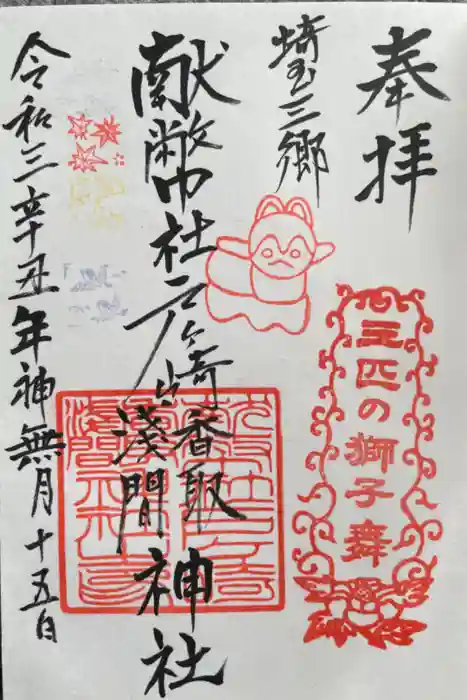 奉拝
埼玉三郷
三匹の獅子舞
献幣社戸ヶ崎香取
浅間神社
令和三辛丑年神無月十五日